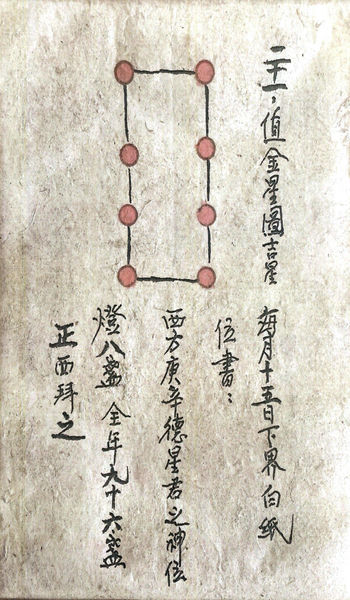 二十一，值金星圖吉星
每月十五日下界白紙
位書：
西方庚辛德星君之神位
燈八盞 全年九十六盞
正西拜之